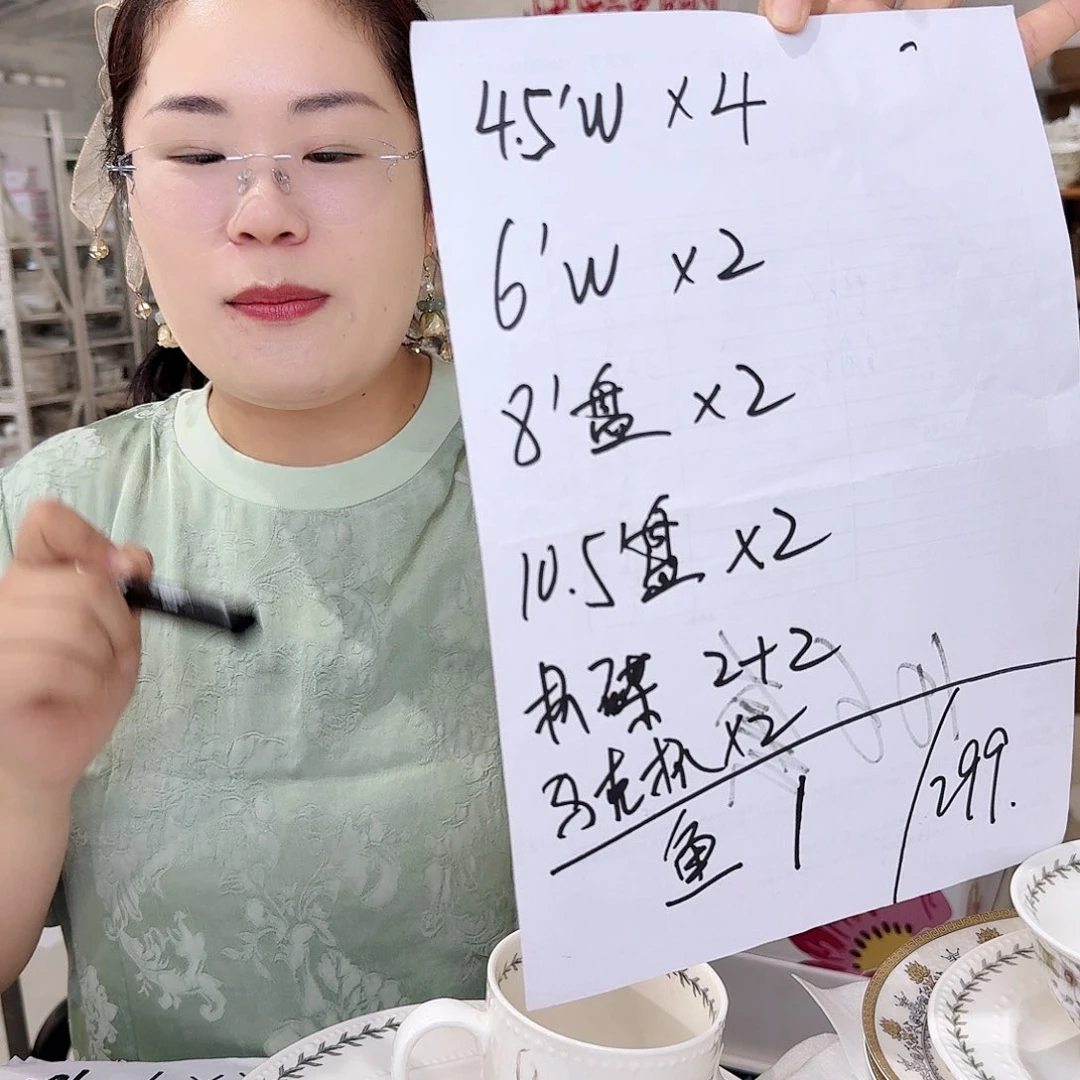 4.5'W ×4
6'W ×2
8'盘 ×2
10.5'盘 ×2
杯碟 2+2
马克杯 ×2
鱼 1 /299.